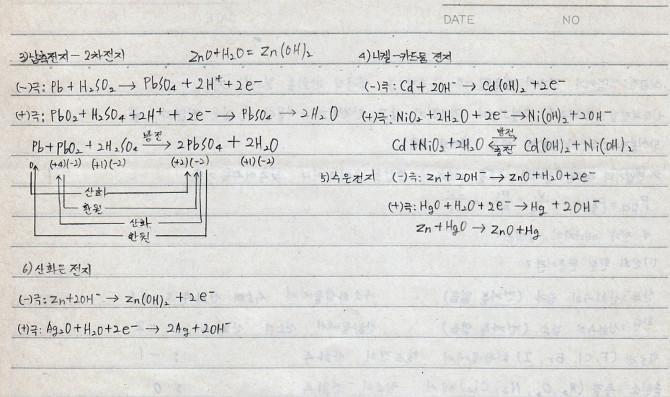 DATE NO
3) 납축전지 - 2차전지 ZnO+H₂O = Zn(OH)₂
(-)극: Pb + H₂SO₂ → PbSO₄ + 2H⁺ + 2e⁻
(+)극: PbO₂ + H₂SO₄ + 2H⁺ + 2e⁻ → PbSO₄ → 2H₂O
Pb + PbO₂ + 2H₂SO₄ 방전→ 2PbSO₄ + 2H₂O
0 (+4)(-2) (+1)(-2) (+2)(-2) (+1)(-2)
산화
환원
산화
환원
4) 니켈-카드뮴 전지
(-)극: Cd + 2OH⁻ → Cd(OH)₂ + 2e⁻
(+)극: NiO₂ + 2H₂O + 2e⁻ → Ni(OH)₂ + 2OH⁻
Cd + NiO₂ + 2H₂O 방전⇄충전 Cd(OH)₂ + Ni(OH)₂
5) 수은전지 (-)극: Zn + 2OH⁻ → ZnO + H₂O + 2e⁻
(+)극: HgO + H₂O + 2e⁻ → Hg + 2OH⁻
Zn + HgO → ZnO + Hg
6) 산화은 전지
(-)극: Zn + 2OH⁻ → Zn(OH)₂ + 2e⁻
(+)극: Ag₂O + H₂O + 2e⁻ → 2Ag + 2OH⁻